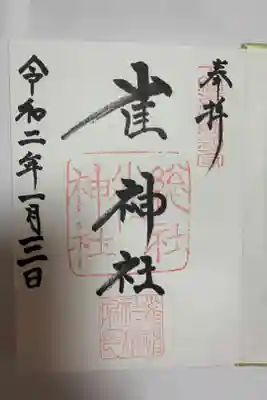 奉拝
雀神社
令和二年一月三日